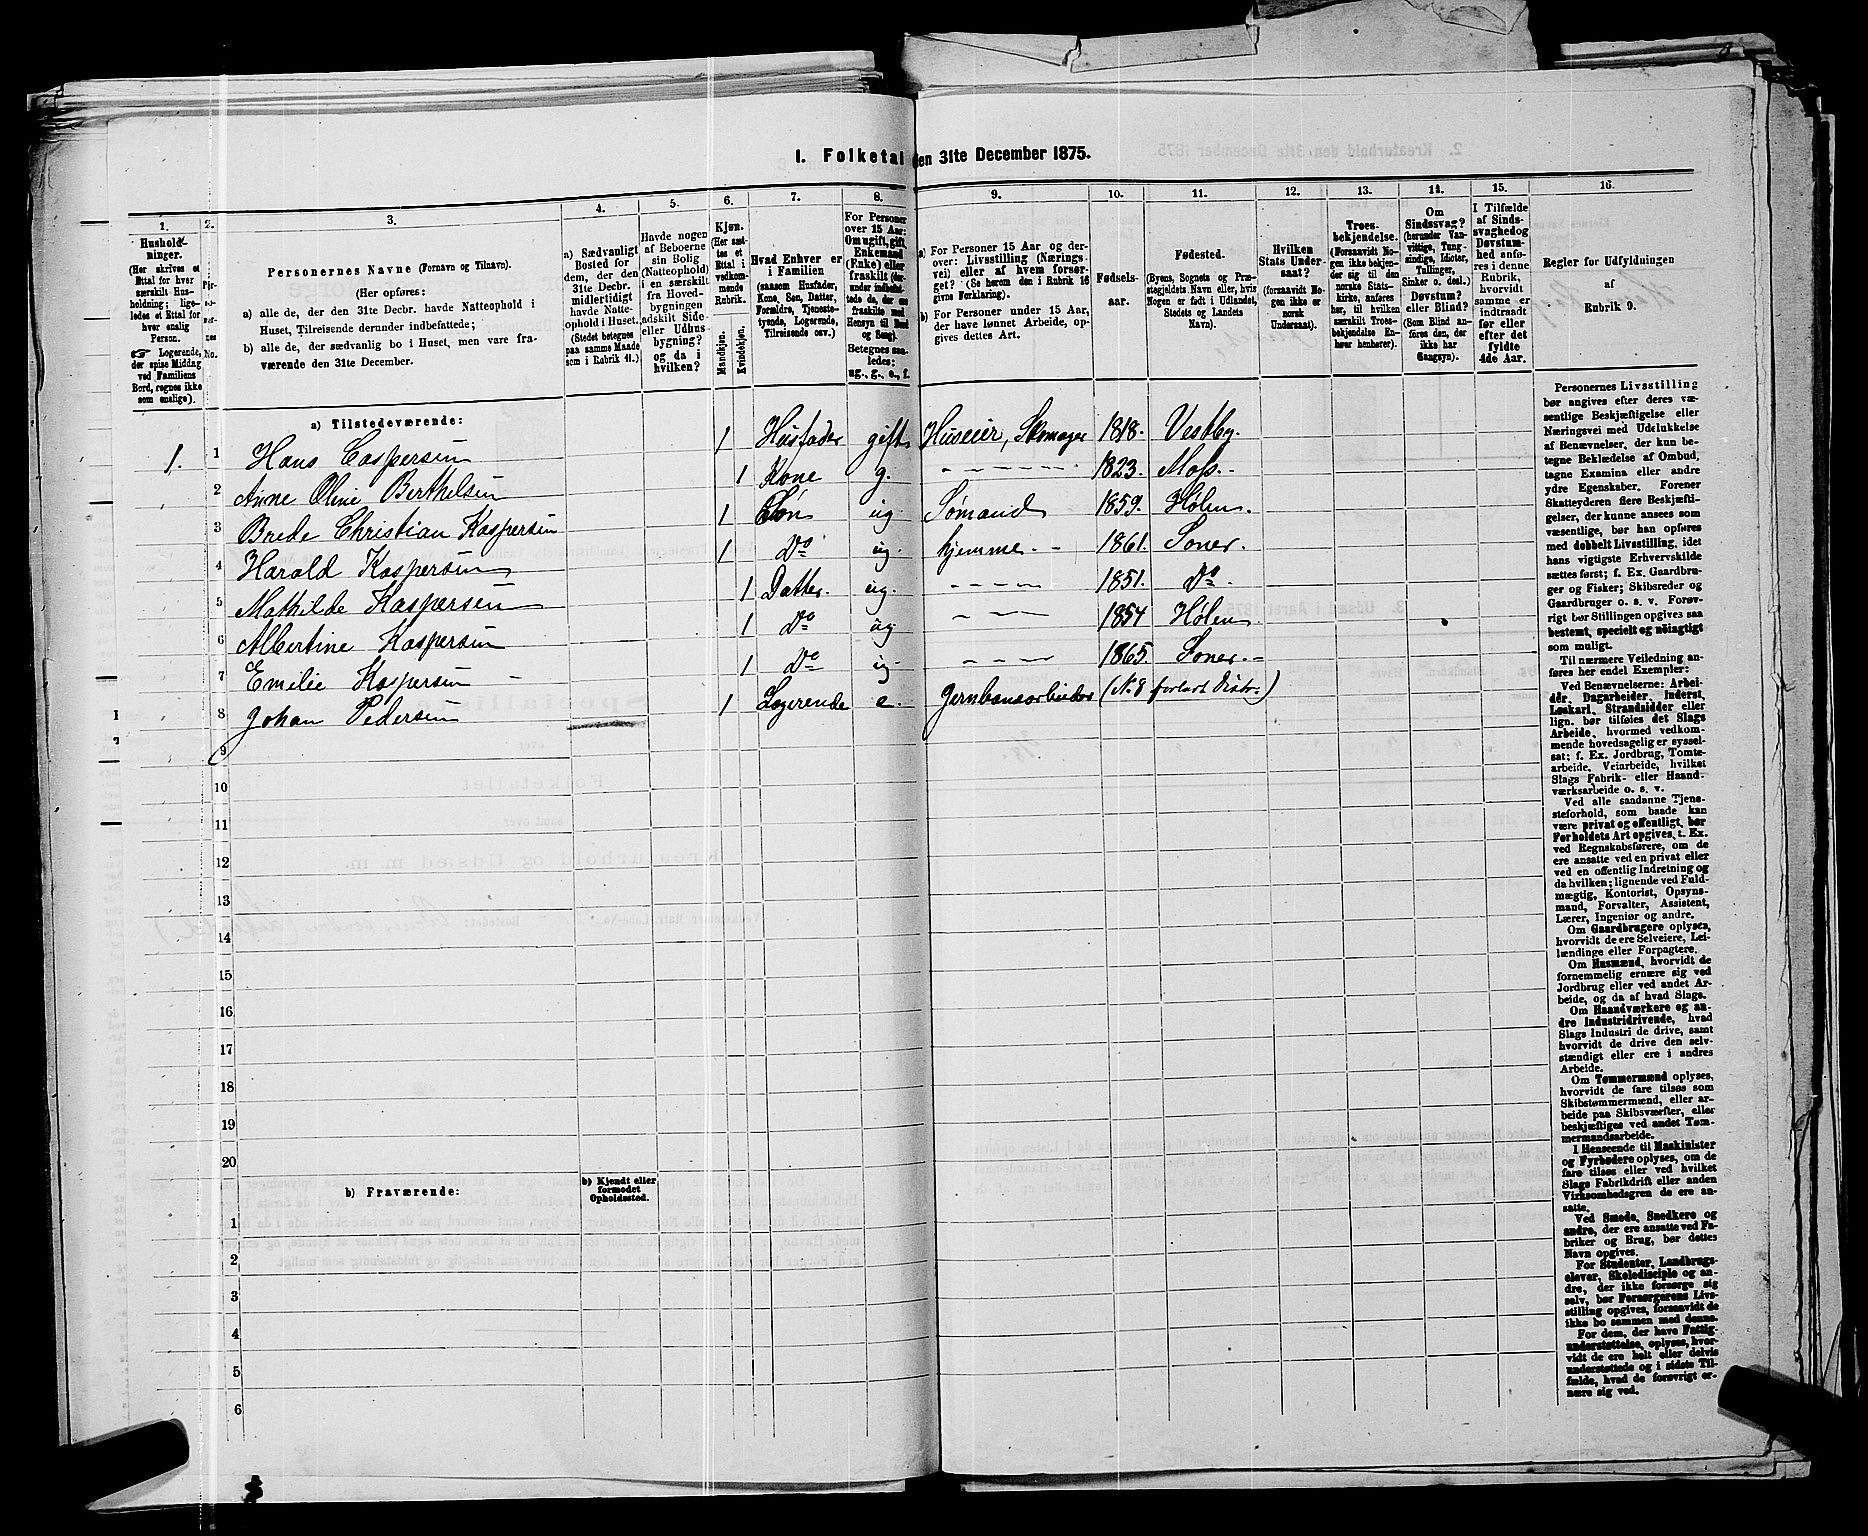 1. Folketal den 31te December 1875.
1. 2. 3. 4. 5. 6. 7. 8. 9. 10. 11. 12. 13. 14. 15. 16.
Hushold-
ninger.
(Her skrives et
Ettal for hver
særskilt Hus-
holdning; lige-
ledes et Ettal for
hver enslig
Person.
☞ Logerende,
der spise Middag
ved Familiens
Bord, regnes ikke
som enslige).
No.
Personernes Navne (Fornavn og Tilnavn).
(Her opføres:
a) alle de, der den 31te Decbr. havde Natteophold i
Huset, Tilreisende derunder indbefattede;
b) alle de, der sædvanlig bo i Huset, men vare fra-
værende den 31te December.
a) Sædvanligt
Bosted for
dem, der den
31te Decbr.
midlertidigt
havde Natte-
ophold i Huset.
(Stedet betegnes
paa samme Maade
som i Rubrik 11.)
Havde nogen
af Beboerne
sin Bolig
(Natteophold)
i en særskilt
fra Hoved-
bygningen
adskilt Side-
eller Udhus-
bygning?
og da i
hvilken?
Kjøn.
(Her sæt-
tes et
Ettal i
vedkom-
mende
Rubrik.
Mandkjøn.
Kvindekjøn.
Hvad Enhver er
i Familien
(saasom Husfader,
Kone, Søn, Datter,
Forældre, Tjeneste-
tyende, Logerende,
Tilreisende osv.)
For Personer
over 15 Aar:
Om ugift, gift,
Enkemand
(Enke) eller
fraskilt (der-
under indbefat-
tede de, der ere
fraskilte med
Hensyn til Bord
og Seng).
Betegnes saa-
ledes:
ug., g., e., f.
a) For Personer 15 Aar og der-
over: Livsstilling (Nærings-
vei) eller af hvem forsør-
get? (Se herom den i Rubrik 16
givne Forklaring).
b) For Personer under 15 Aar,
der have lønnet Arbeide, op-
gives dettes Art.
Fødsels-
aar.
Fødested.
(Byens, Sognets og Præ-
stegjeldets Navn eller, hvis
Nogen er født i Udlandet,
Stedets og Landets
Navn).
Hvilken
Stats Under-
saat?
(forsaavidt No-
gen ikke er
norsk
Undersaat).
Troes-
bekjendelse.
(Forsaavidt No-
gen ikke bekjen-
der sig til den
norske Stats-
kirke, anføres
her, til hvilken
særskilt Troes-
bekjendelse En-
hver henhører).
Om
Sindssvag?
(herunder Van-
vittige, Tung-
sindige, Idioter,
Tullinger,
Sinker o. desl.)
Døvstum?
eller Blind?
(Som Blind an-
føres den, der
ikke har
Gangsyn).
I Tilfælde
af Sinds-
svaghed og
Døvstum-
hed anfø-
res i denne
Rubrik,
hvorvidt
samme er
indtraadt
før eller
efter det
fyldte
4de Aar.
Regler for Udfyldningen
af
Rubrik 9.
a) Tilstedeværende:
1. 1 Hans Caspersen 1 Husfader gift Huseier, Skomager 1818. Vestby.
2 Anne Oline Berthelsen 1 Kone g. - - - - - 1823. Moss. -
3 Brede Christian Kaspersen 1 Søn ug. Sømand 1859. Hølen.
4 Harald Kaspersen 1 Do ug. hjemme - - 1861. Soner.
5 Mathilde Kaspersen 1 Datter. ug. - - - - 1851. Do.
6 Albertine Kaspersen 1 Do ug - - - 1854 Hølen
7 Emilie Kaspersen - 1 Do ug - - - - 1865. Soner. -
8 Johan Pedersen 1 Logerende e. Jernbanearbeider (No 8 forlort Distr.)
9
10
11
12
13
14
15
16
17
18
19
20
b) Fraværende:
b) Kjendt eller
formodet
Opholdssted.
1
2
3
4
5
6
Personernes Livsstilling
bør angives efter deres væ-
sentlige Beskjæftigelse eller
Næringsvei med Udelukkelse
af Benævnelser, der kun be-
tegne Beklædelse af Ombud,
tagne Examina eller andre
ydre Egenskaber. Forener
Skatteyderen flere Beskjæfti-
gelser, der kunne ansees som
væsentlige, bør han opføres
med dobbelt Livsstilling, idet
hans vigtigste Erhvervskilde
sættes først; f. Ex. Gaardbru-
ger og Fisker; Skibsreder og
Gaardbruger o. s. v. Forøv-
rigt bør Stillingen opgives saa
bestemt, specielt og nøiagtigt
som muligt.
Til nærmere Veiledning an-
føres her endel Exempler:
Ved Benævnelserne: Arbei-
der, Dagarbeider, Inderst,
Løskarl, Strandsidder eller
lign. bør tilføies det Slags
Arbeide, hvormed vedkom-
mende hovedsagelig er syssel-
sat; f. Ex. Jordbrug, Tomte-
arbeide, Veiarbeide, hvilket
Slags Fabrik- eller Haand-
værksarbeide o. s. v.
Ved alle saadanne Tjene-
steforhold, som baade kan
være privat og offentligt, bør
Forholdets Art opgives, t. Ex.
ved Regnskabsførere, om de
ere ansatte ved en privat eller
ved en offentlig Indretning og
da hvilken; lignende ved Fuld-
mægtig, Kontorist, Opsyns-
mand, Forvalter, Assistent,
Lærer, Ingeniør og andre.
Om Gaardbrugere oplyses,
hvorvidt de ere Selveiere, Lei-
lændinge eller Forpagtere.
Om Husmænd, hvorvidt de
fornemmelig ernære sig ved
Jordbrug eller ved andet Ar-
beide, og da af hvad Slags.
Om Haandværkere og an-
dre Industridrivende, hvad
Slags Industri de drive, samt
hvorvidt de drive den selv-
stændigt eller ere i andres
Arbeide.
Om Tømmermænd oplyses,
hvorvidt de fare tilsøs som
Skibstømmermænd, eller ar-
beide paa Skibsværfter, eller
beskjæftiges ved andet Tøm-
mermandsarbeide.
I Henseende til Maskinister
og Fyrbødere oplyses, om de
fare tilsøs eller ved hvilket
Slags Fabrikdrift eller anden
Virksomhedsgren de ere an-
satte.
Ved Smede, Snedkere og
andre, der ere ansatte ved Fa-
briker og Brug, bør dettes
Navn opgives.
For Studenter, Landbrugs-
elever, Skoledisciple og an-
dre, der ikke forsørge sig
selv, bør Forsørgerens Livs-
stilling opgives, forsaavidt de
ikke bo sammen med denne.
For dem, der have Fattig-
understøttelse, oplyses, hvor-
vidt de ere helt eller delvis
understøttede og i sidste Til-
fælde, hvad de forøvrigt er-
nære sig ved.